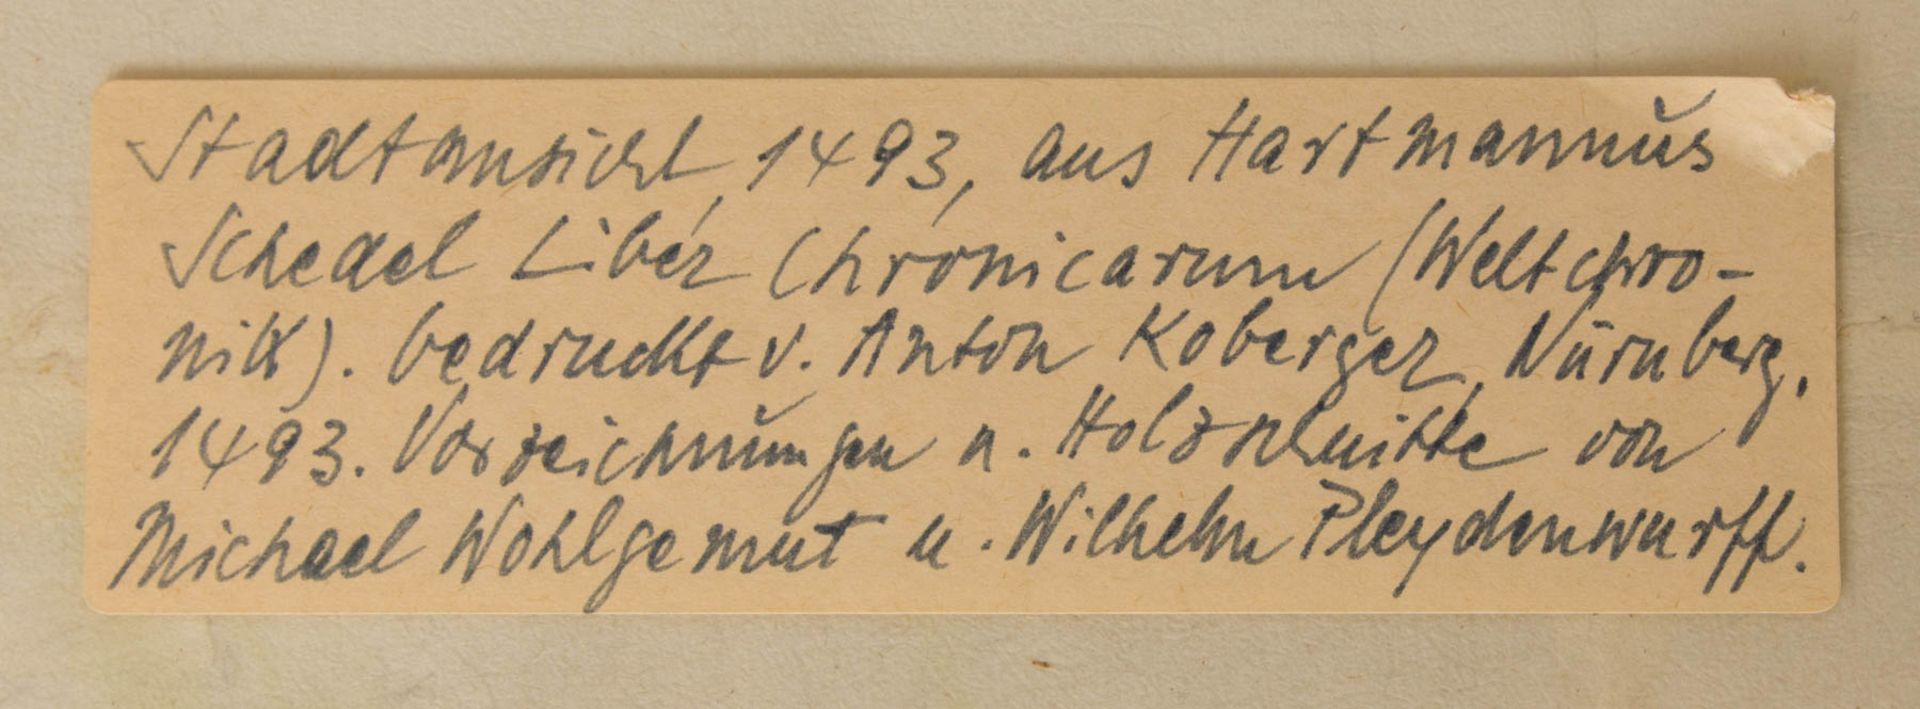 Stadtansicht 1493, aus Hartmannus
Schedel Liber Chronicarum (Weltchro-
nik). bedruckt v. Anton Koberger, Nürnberg,
1493. Vorzeichnungen u. Holzschnitte von
Michael Wohlgemut u. Wilhelm Pleydenwurff.